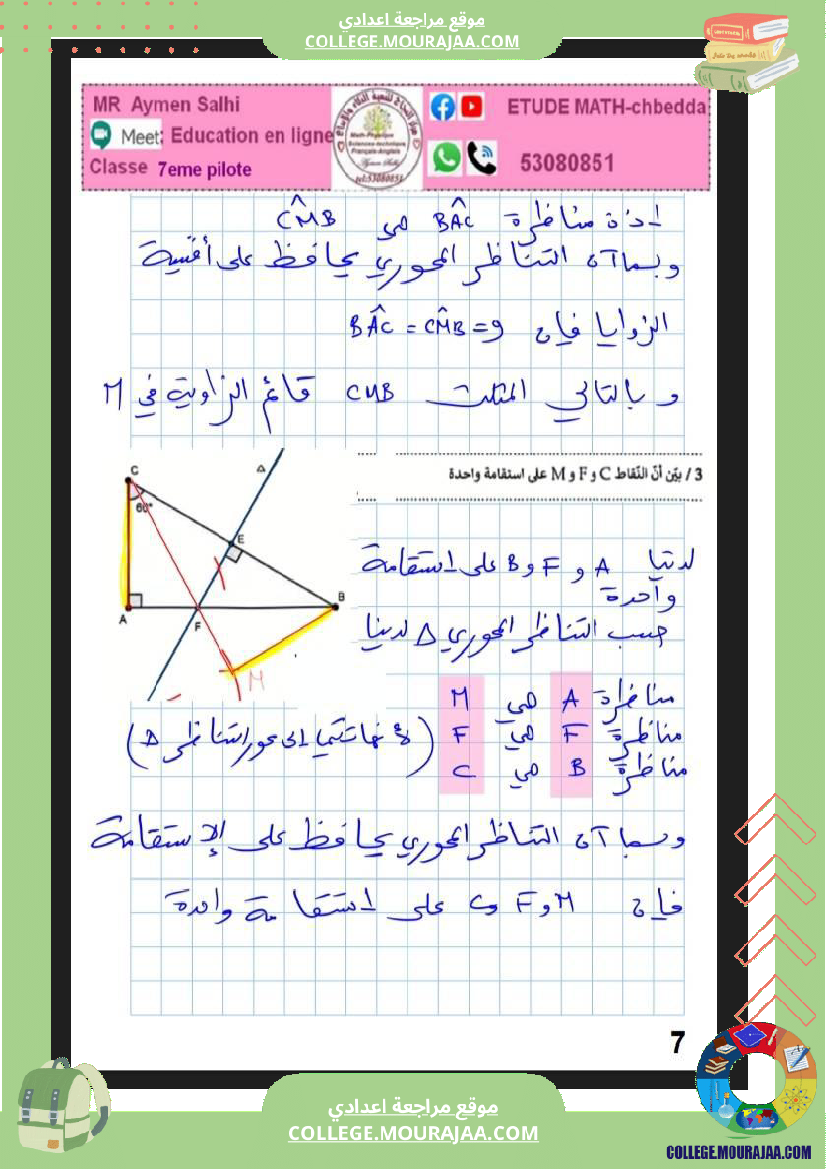 موقع مراجعة اعدادي
COLLEGE.MOURAJAA.COM
MR Aymen Salhi
Meet: Education en ligne
Classe 7eme pilote
ETUDE MATH-chbedda
53080851
إذن مناظرة BÂC هي CM̂B
وبما أن التناظر المحوري يحافظ على أقيسة
الزوايا فإن BÂC = CM̂B = 90
وبالتالي المثلث CMB قائم الزاوية في M
3/ بيّن أنّ النّقاط C و F و M على استقامة واحدة
C
Δ
60°
E
A
F
B
M
لدينا A و F و B على استقامة
واحدة
حسب التناظر المحوري Δ لدينا
مناظرة A هي M
مناظرة F هي F (لأنها تنتمي إلى محور التناظر Δ)
مناظرة B هي C
وبما أن التناظر المحوري يحافظ على الإستقامة
فإن M و F و C على استقامة واحدة
7
موقع مراجعة اعدادي
COLLEGE.MOURAJAA.COM
COLLEGE.MOURAJAA.COM